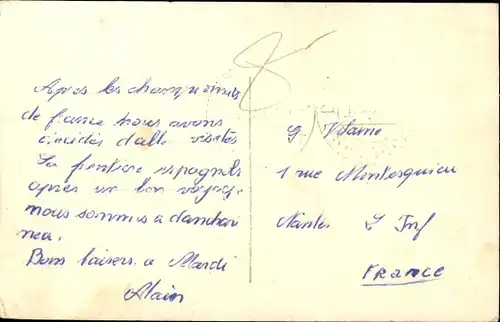 Apres les championnats
de france nous avons
cécidés d'allé visités
la frontiere espagnole
apres un bon voyage
nous sommes a danchari
nea.
Bons baisers a Mardi
Alain
G. Vilaine
1 rue Montesquieu
Nantes L Inf
France